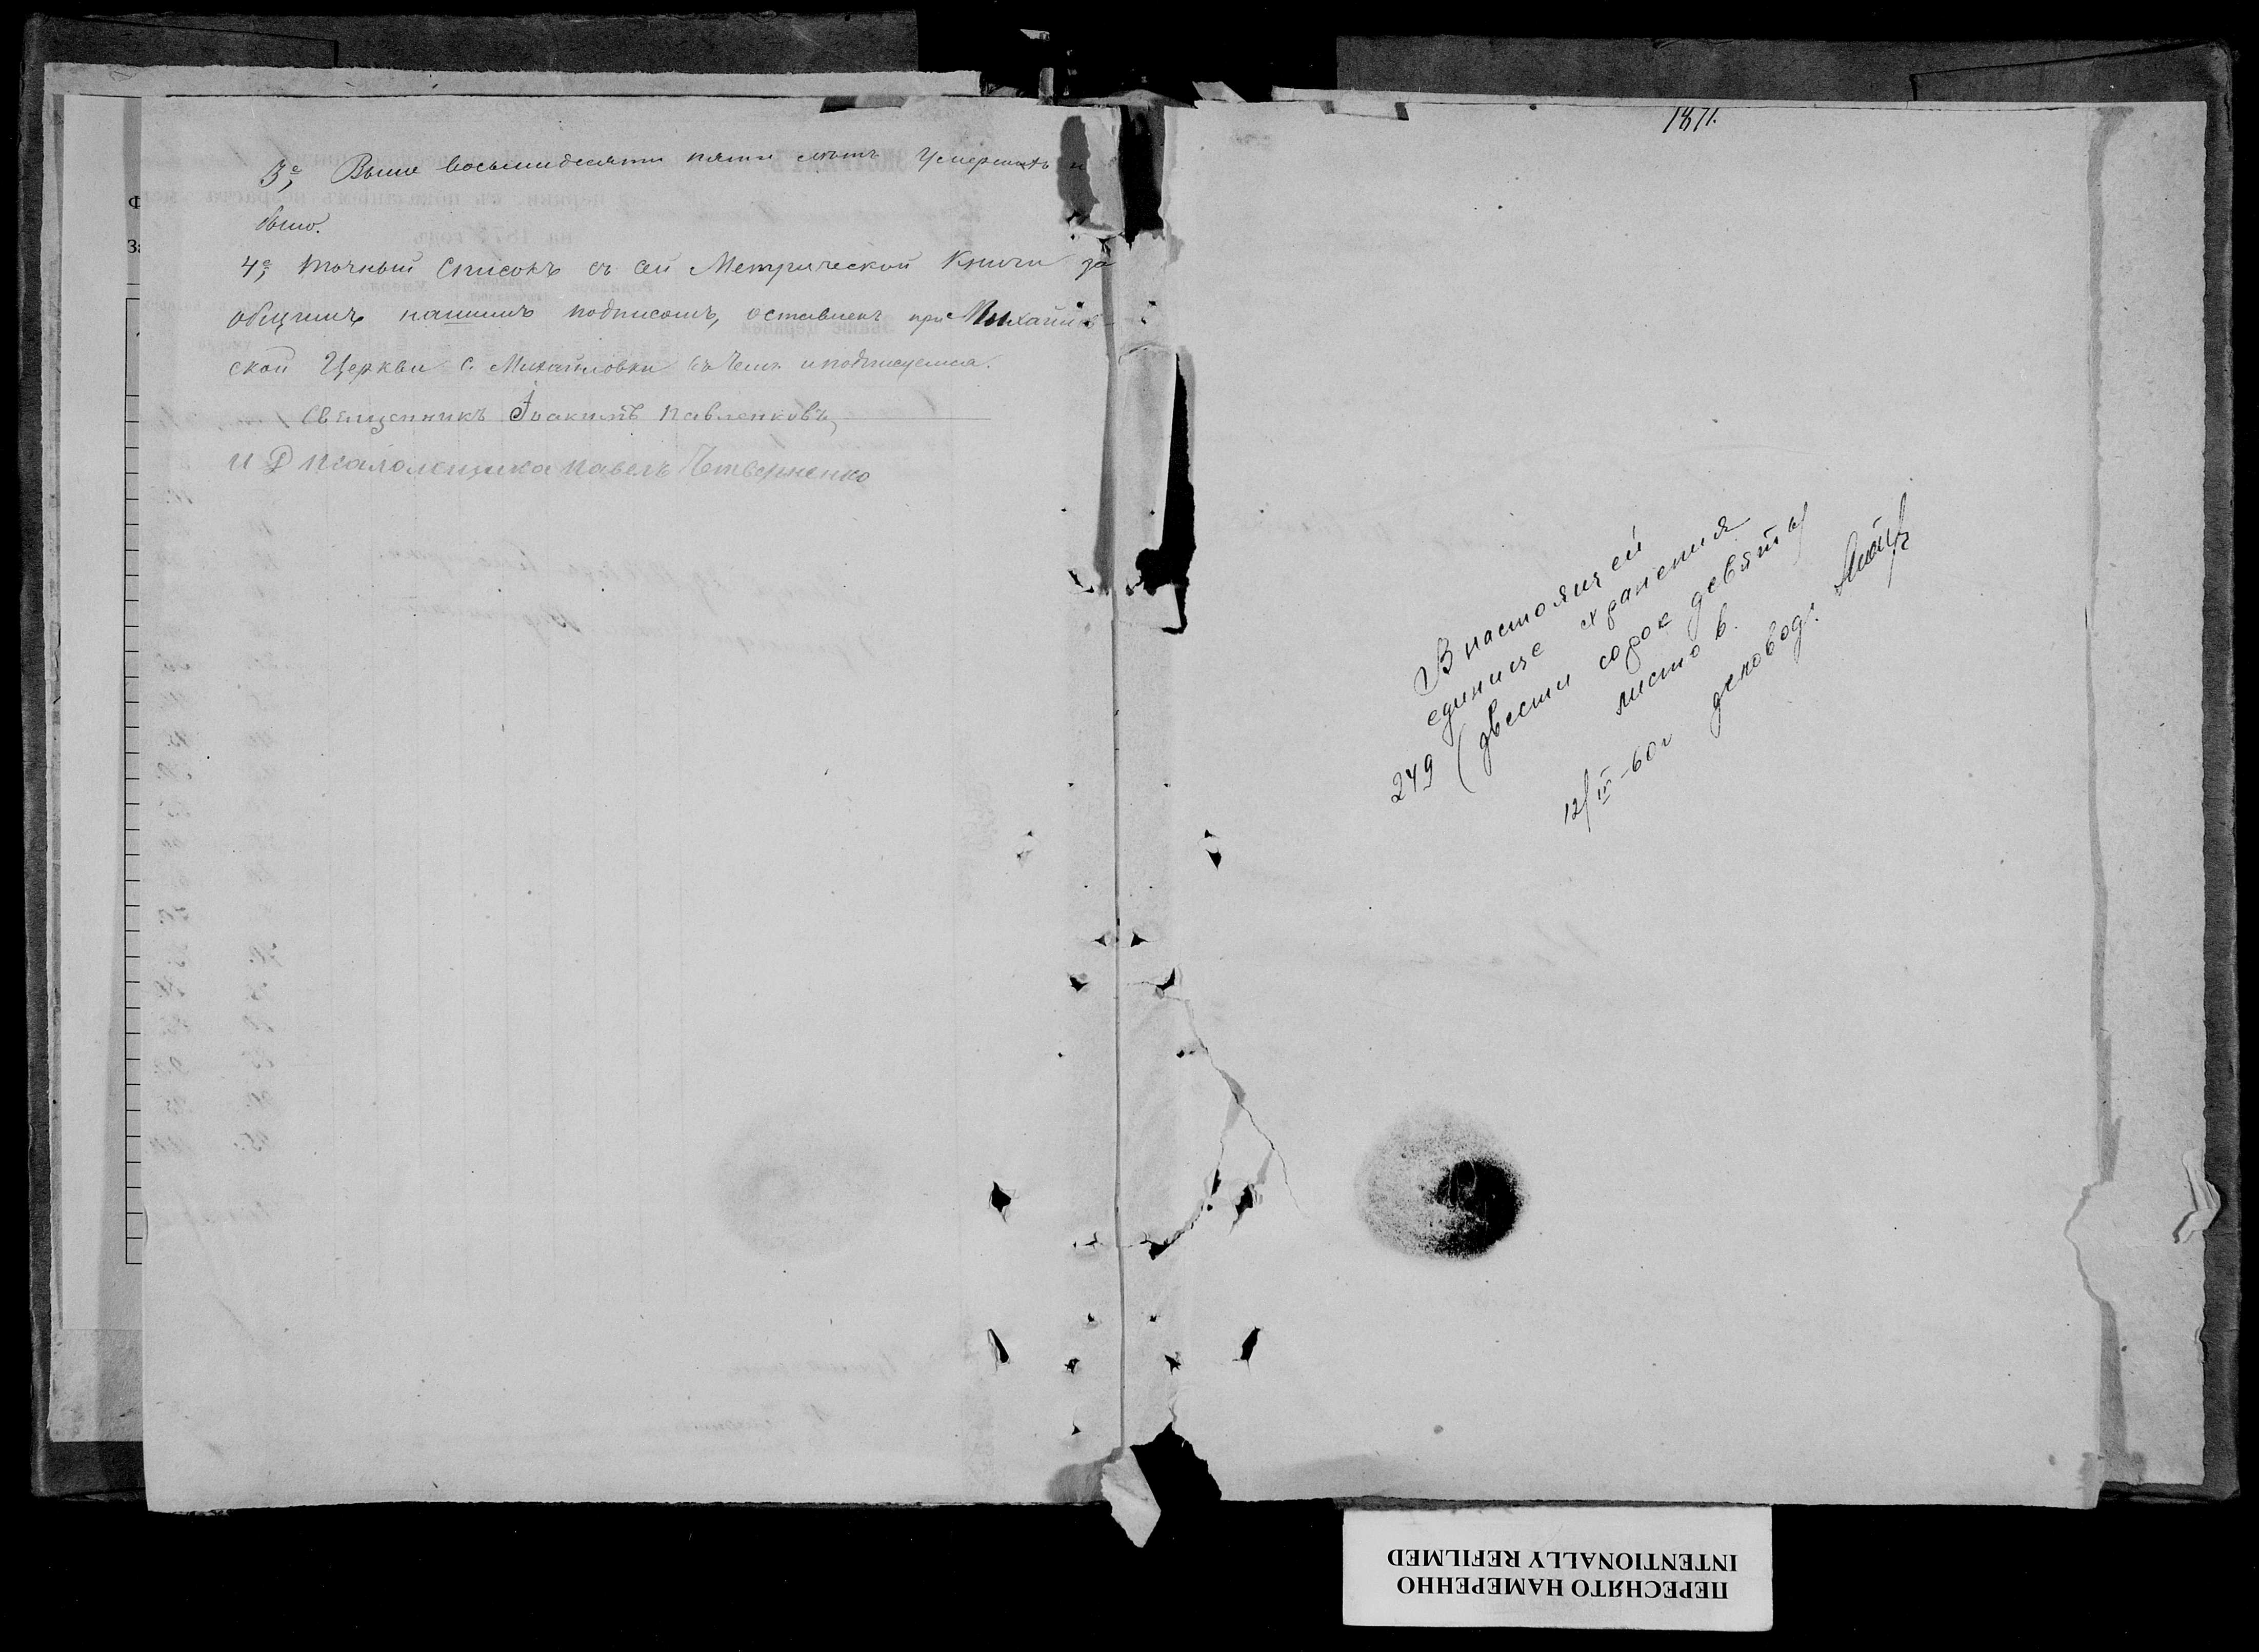 3е, Выше восьмидесяти пяти летъ Умершихъ н
было.
4е, точный Списокъ съ сей Метрической Книги за
общимъ нашимъ подписомъ, оставленъ при Михайлов-
ской Церкви с. Михайловки въ чемъ и подписуемся.
Священникъ Іоакимъ Павленковъ,
И Д Псаломщика Павелъ Четверненко
1871.
В настоящей
единице хранения
249 (двести сорок девять)
листов.
12/IV-60г деловод:
ПЕРЕСНЯТО НАМЕРЕННО
INTENTIONALLY REFILMED